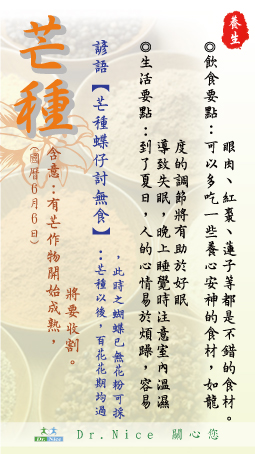 養生
◎飲食要點：可以多吃一些養心安神的食材，如龍
眼肉、紅棗、蓮子等都是不錯的食材。
◎生活要點：到了夏日，人的心情易於煩躁，容易
導致失眠，晚上睡覺時注意室內溫濕
度的調節將有助於好眠
諺語【芒種蝶仔討無食】：芒種以後，百花花期均過
，此時之蝴蝶已無花粉可採
芒種
含意：有芒作物開始成熟，
將要收割。
(國曆6月6日)
Dr.Nice
Dr.Nice 關心您